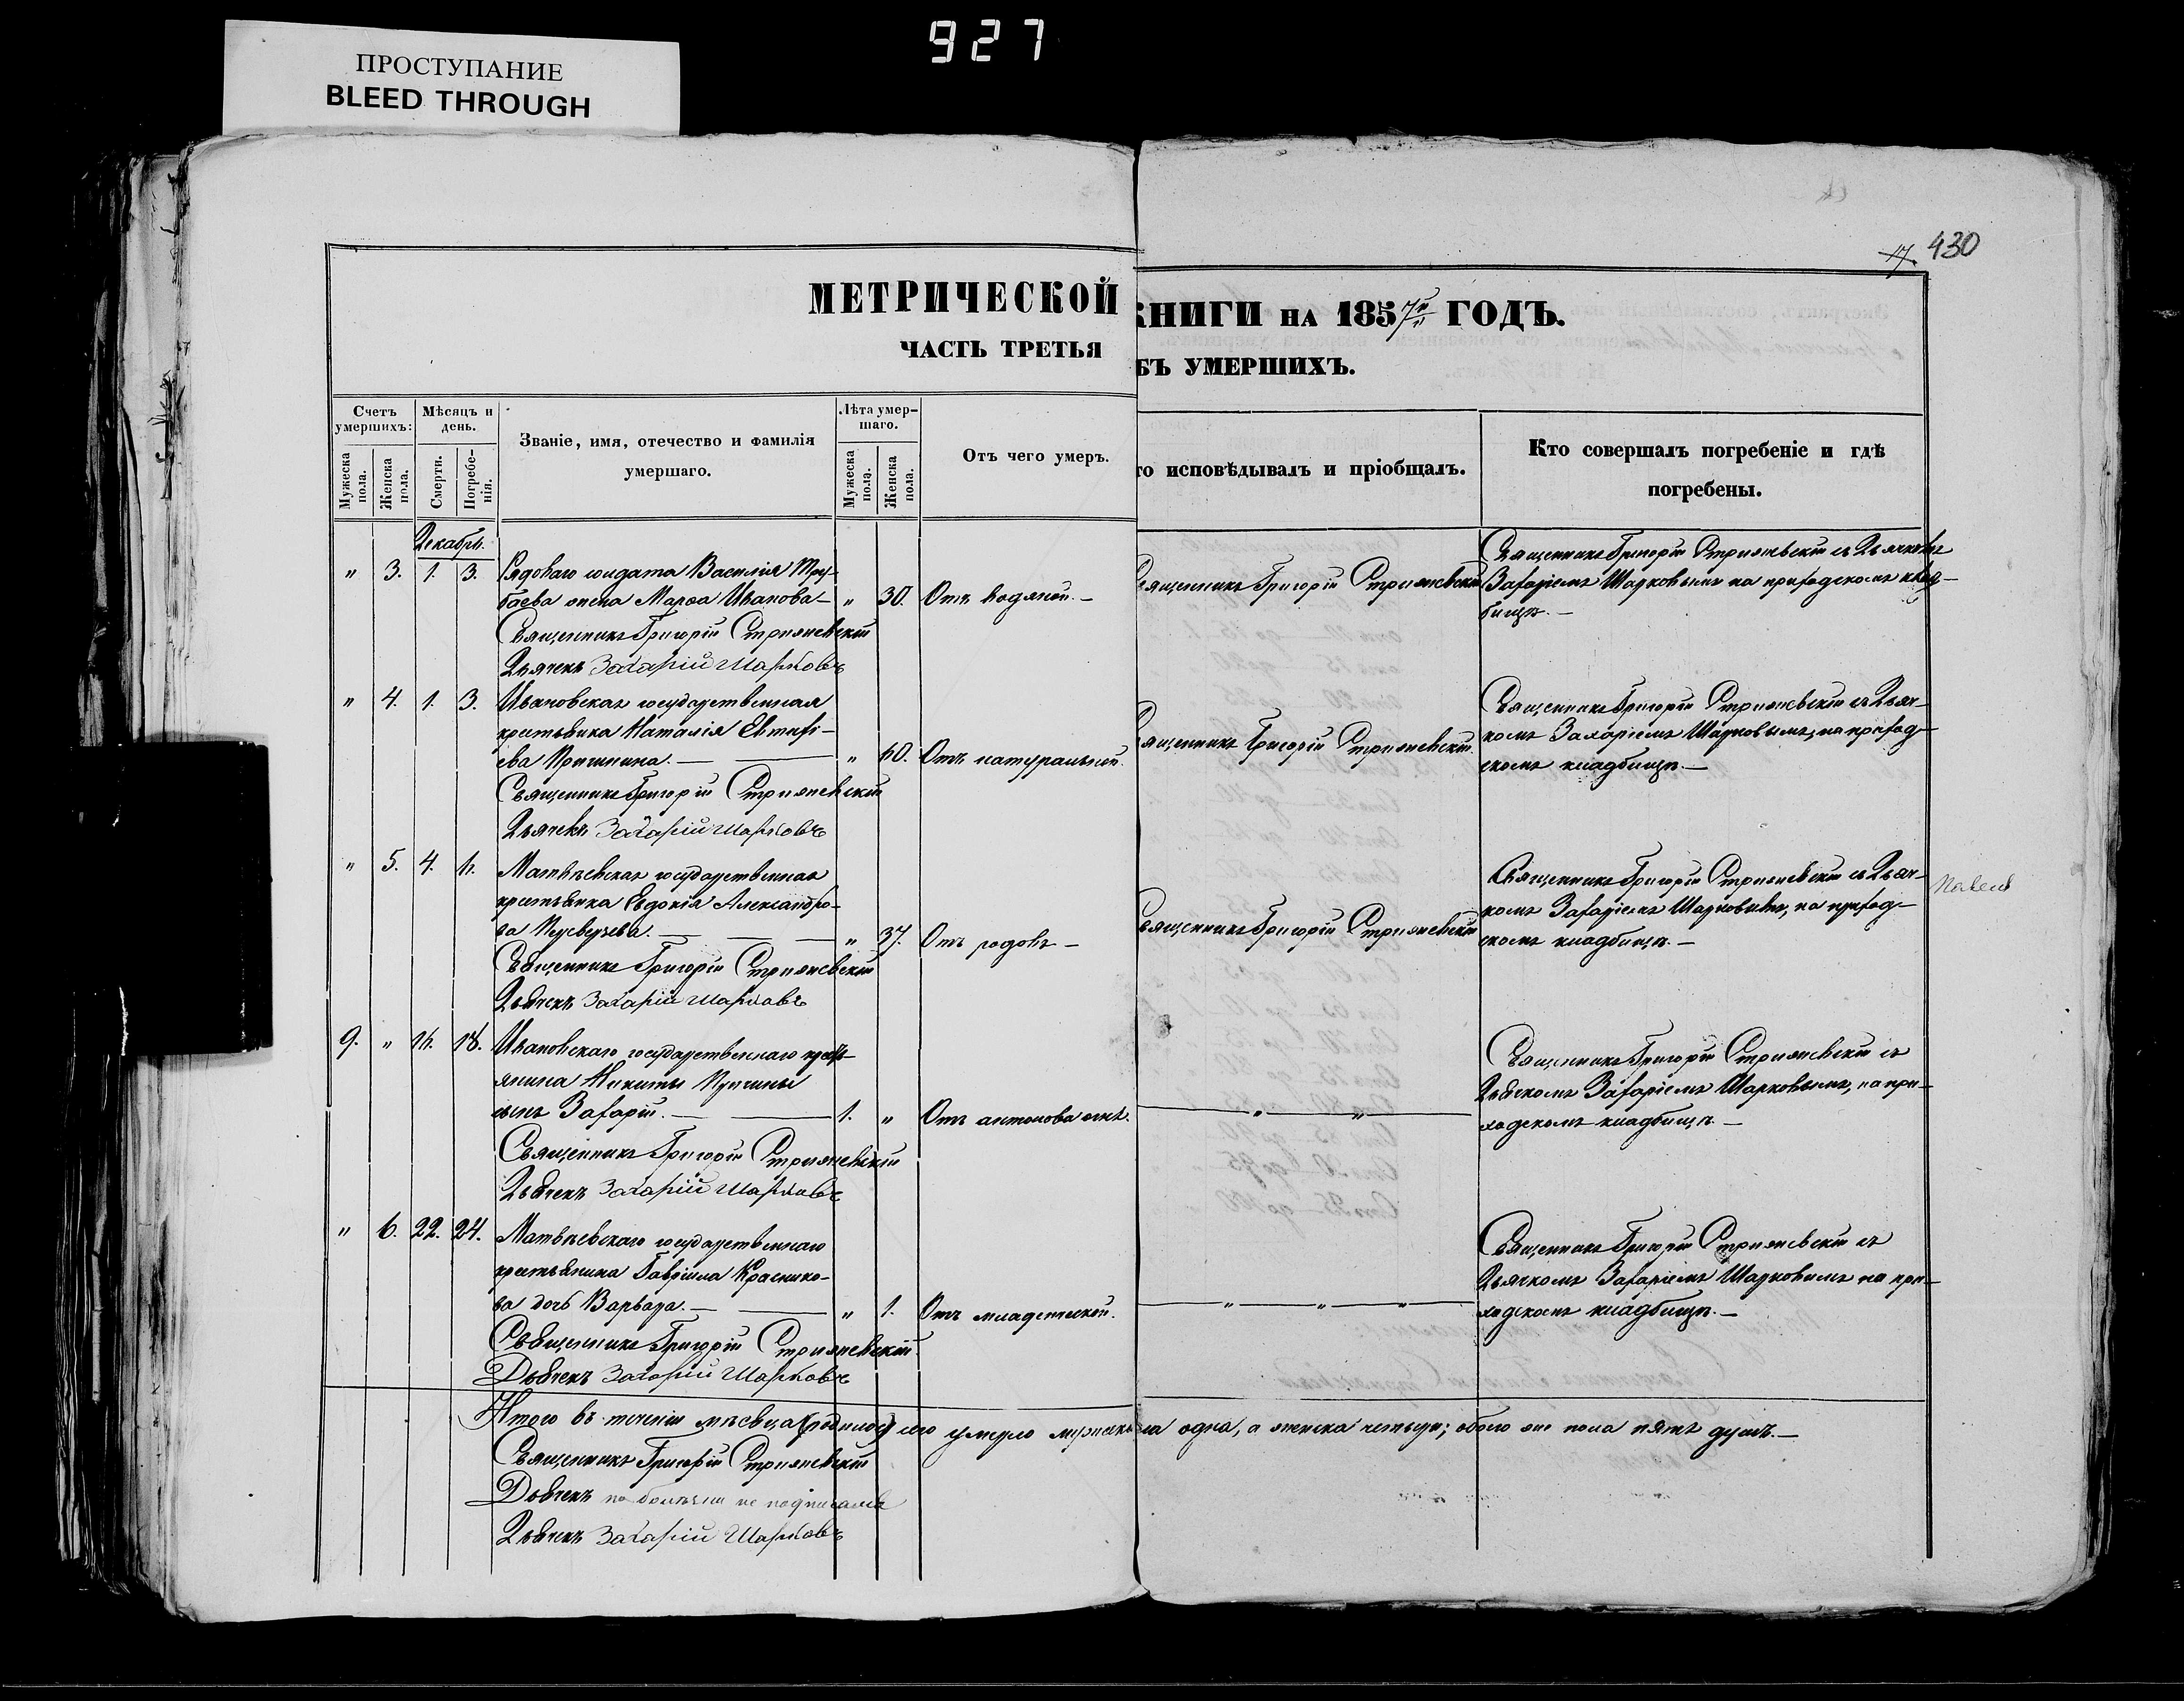 927
ПРОСТУПАНИЕ
BLEED THROUGH
17. 430
МЕТРИЧЕСКОЙ КНИГИ НА 1857й ГОДЪ.
ЧАСТЬ ТРЕТЬЯ
БЪ УМЕРШИХЪ.
Счетъ умершихъ:
Мужеска пола.
Женска пола.
Мѣсяцъ и день.
Смерти.
Погребенія.
Званіе, имя, отечество и фамилія
умершаго.
Лѣта умершаго.
Мужеска пола.
Женска пола.
Отъ чего умеръ.
то исповѣдывалъ и пріобщалъ.
Кто совершалъ погребеніе и гдѣ
погребены.
Декабрь.
" 3. 1. 3. Рядоваго солдата Василія
жена Марѳа Иванова — " 30. Отъ водяной. —
Священникъ Григорій Стрижевскій
Дьячекъ Захарій Шарковъ
Священникъ Григорій Стрижевскій
Священникъ Григорій Стрижевскій съ Дьячкомъ
Захаріемъ Шарковымъ на приходскомъ клад-
бищѣ. —
" 4. 1. 3. Ивановская государственная
крестьянка Наталія Евтихі-
ева — " 60. Отъ натуральной.
Священникъ Григорій Стрижевскій
Дьячекъ Захарій Шарковъ
Священникъ Григорій Стрижевскій
Священникъ Григорій Стрижевскій съ Дьяч-
комъ Захаріемъ Шарковымъ, на приход-
скомъ кладбищѣ. —
" 5. 4. 6. Матвѣевская государственная
крестьянка Евдокія Александро-
ва — " 37. Отъ родовъ —
Священникъ Григорій Стрижевскій
Дьячекъ Захарій Шарковъ
Священникъ Григорій Стрижевскій
Священникъ Григорій Стрижевскій съ Дьяч-
комъ Захаріемъ Шарковымъ, на приход-
скомъ кладбищѣ. —
9. " 16. 18. Ивановскаго государственнаго кресть-
янина Никиты
сынъ Захарій. — 1. " Отъ антонова огня.
Священникъ Григорій Стрижевскій
Дьячекъ Захарій Шарковъ
Священникъ Григорій Стрижевскій съ
Дьячкомъ Захаріемъ Шарковымъ, на при-
ходскомъ кладбищѣ. —
" 6. 22. 24. Матвѣевскаго государственнаго
крестьянина Гавріила Краснико-
ва дочь Варвара. — " 1. Отъ младенческой.
Священникъ Григорій Стрижевскій
Дьячекъ Захарій Шарковъ
Священникъ Григорій Стрижевскій съ
Дьячкомъ Захаріемъ Шарковымъ на при-
ходскомъ кладбищѣ. —
Итого въ теченіи мѣсяца сего умерло мужеска одна, а женска четыре; обоего пола пять душъ. —
Священникъ Григорій Стрижевскій
Дьячекъ по болѣзни не подписался
Дьячекъ Захарій Шарковъ